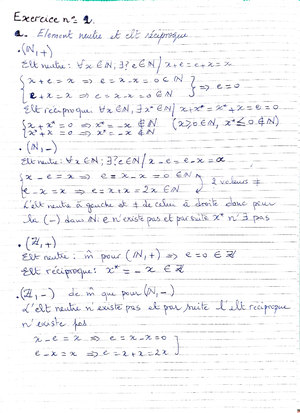 Exercice n° 1.
a. Element neutre et elt réciproque
. (ℕ, +)
Elt neutre : ∀x∈ℕ ; ∃?e∈ℕ / x+e = e+x = x
{ x + e = x ⇒ e = x-x = 0 ∈ ℕ
{ e + x = x ⇒ e = x-x = 0 ∈ ℕ } ⇒ e = 0
Elt réciproque : ∀x∈ℕ, ∃x*∈ℕ / x+x* = x*+x = e = 0
{ x + x* = 0 ⇒ x* = -x ∉ ℕ (x⩾0∈ℕ, x*⩽0∉ℕ)
{ x* + x = 0 ⇒ x* = -x ∉ ℕ
. (ℕ, -)
Elt neutre : ∀x∈ℕ ; ∃?e∈ℕ / x-e = e-x = x
{ x - e = x ⇒ e = x-x = 0 ∈ ℕ
{ e - x = x ⇒ e = x+x = 2x ∈ ℕ } 2 valeurs ≠
L'elt neutre à gauche et ≠ de celui à droite donc pour
la (-) dans ℕ : e n'existe pas et par suite x* n'∃ pas
. (ℤ, +)
Elt neutre : m̂ pour (ℕ, +) ⇒ e = 0 ∈ ℤ
Elt réciproque : x* = -x ∈ ℤ
. (ℤ, -) de m̂ que pour (ℕ, -)
L'elt neutre n'existe pas et par suite l'elt réciproque
n'existe pas
x - e = x ⇒ e = x-x = 0
e - x = x ⇒ e = x+x = 2x ]